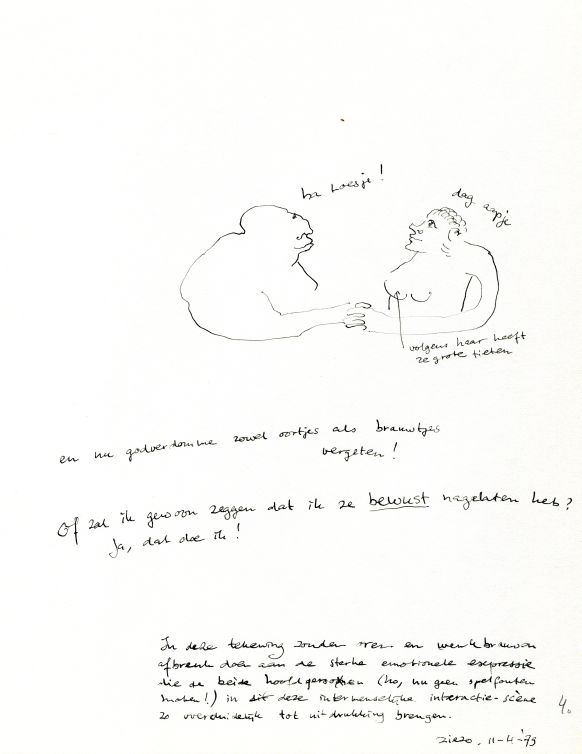 ha koesje!
dag aapje
volgens haar heeft
ze grote tieten
en nu godverdomme zowel oortjes als brauwtjes
vergeten!
Of zal ik gewoon zeggen dat ik ze bewust nagelaten heb?
Ja, dat doe ik!
In deze tekening zonder oren en wenkbrauwen
afbreuk doen aan de sterke emotionele expressie
die de beide hoofdpersonen (ho, nu geen spelfouten
maken!) in dit deze intermenselijke interactie-scène
zo overduidelijk tot uitdrukking brengen.
4.
ziezo. 11-4-'93